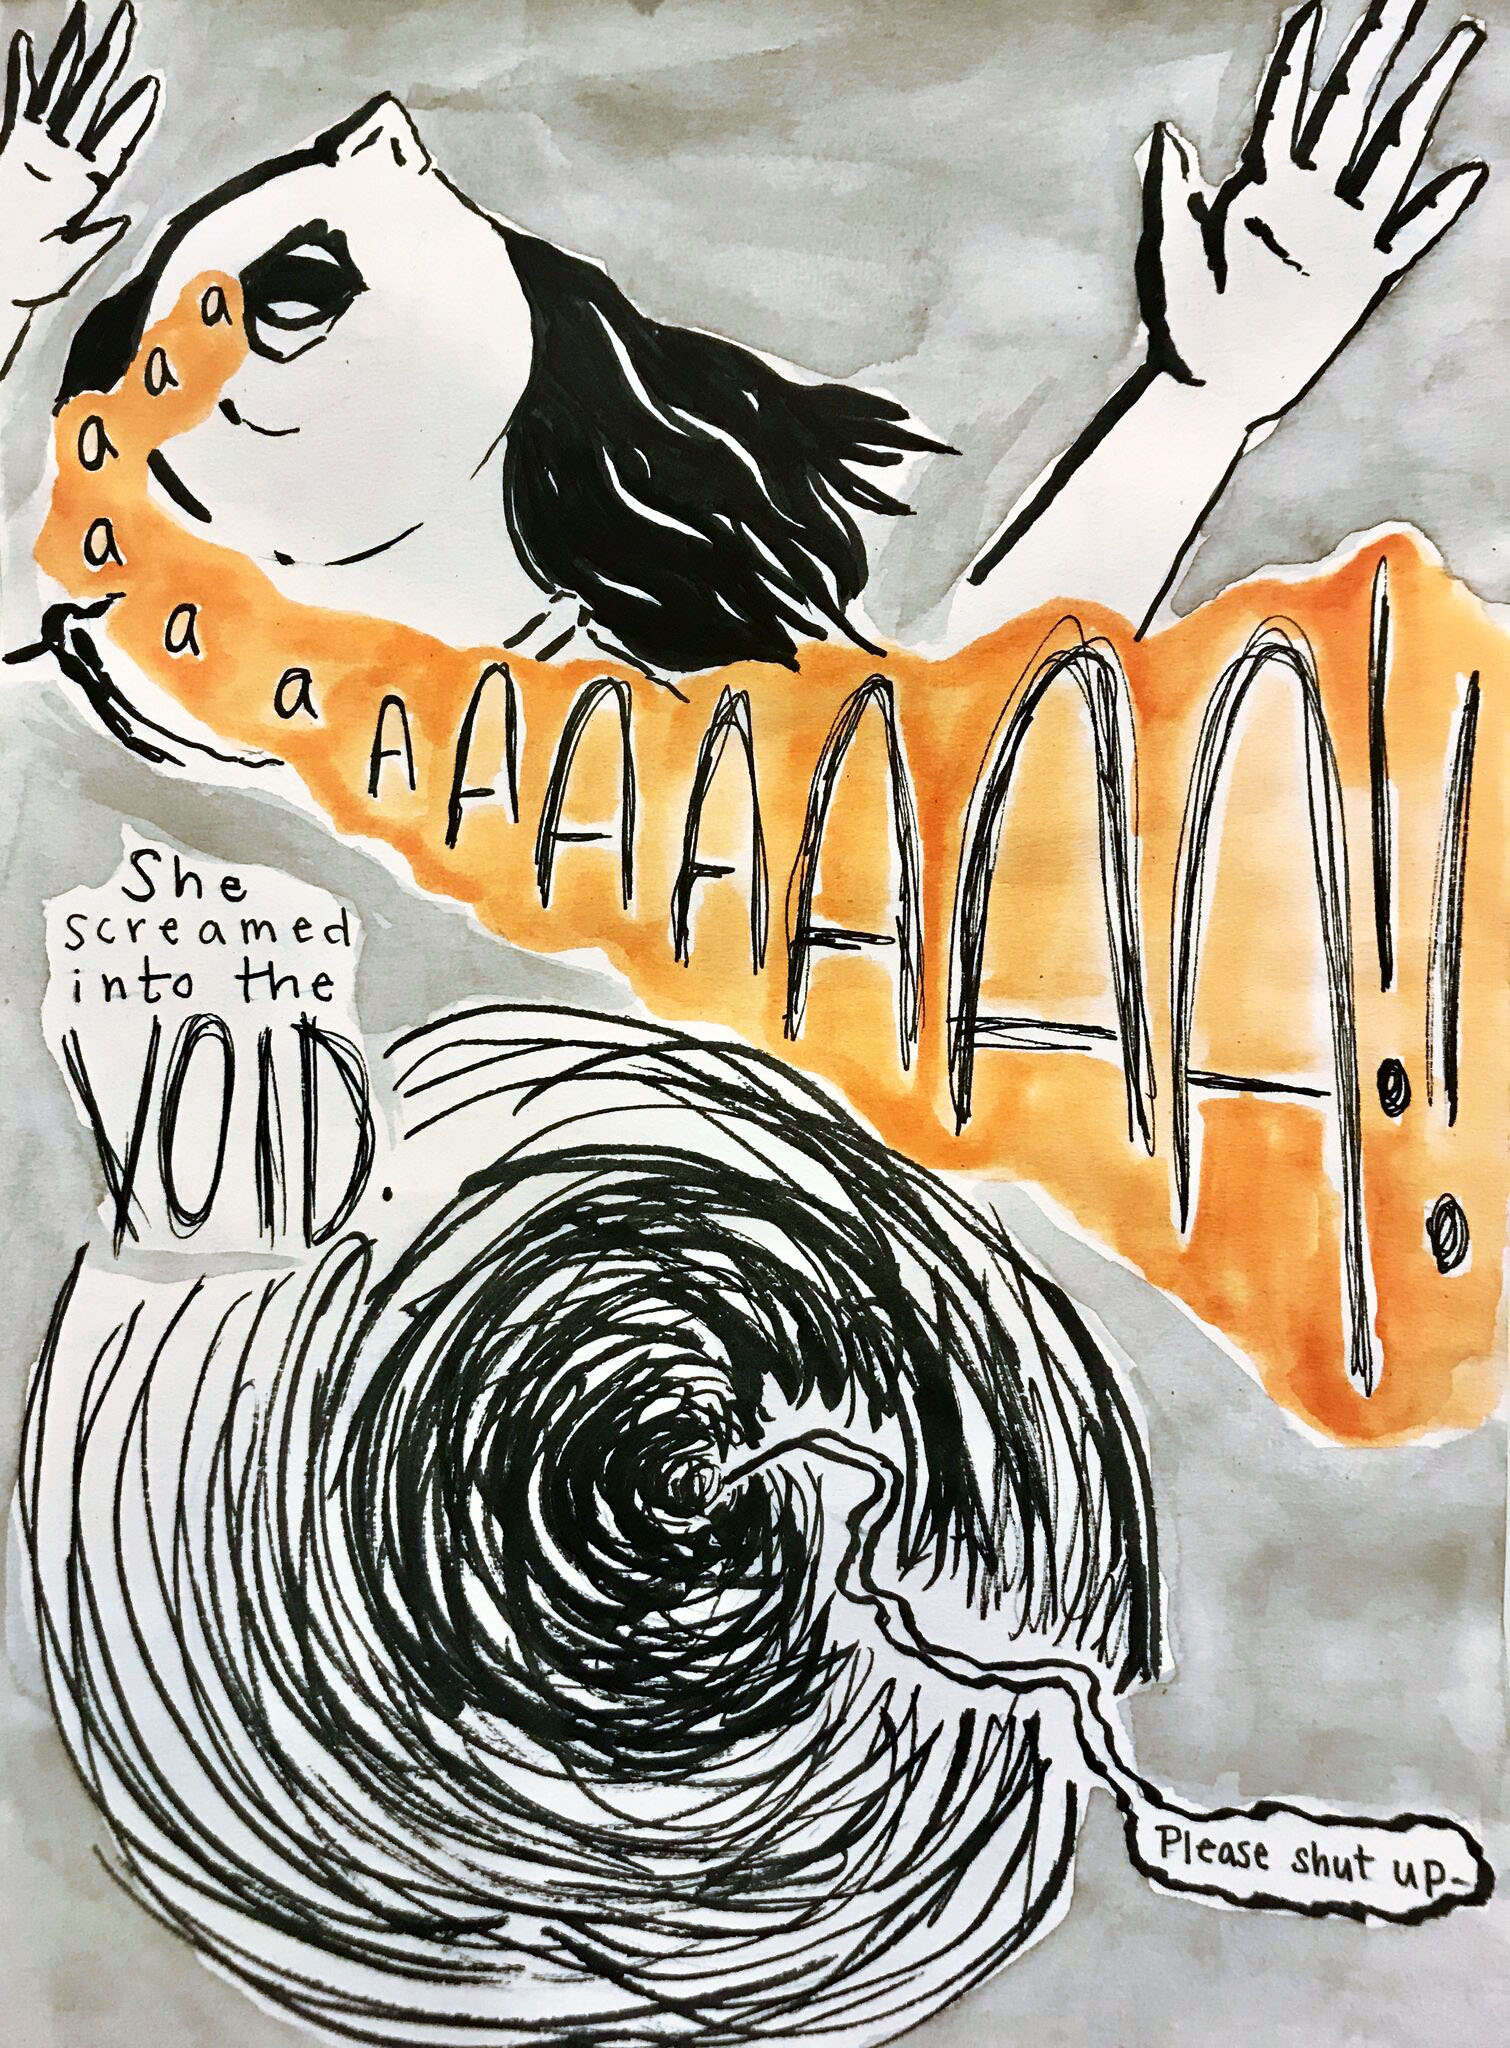 aaaaaaAAAAAAA!!
She
screamed
into the
VOID.
Please shut up-